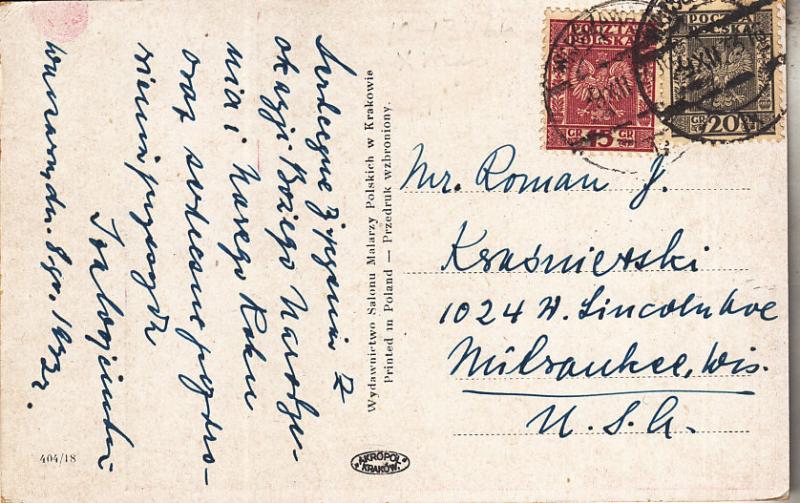 Serdeczne życzenia z
okazji Bożego Narodze-
nia i Nowego Roku
oraz serdeczne pozdro-
wienia
Warszawa, dn. 8 gr. 1932 r.
Wydawnictwo Salonu Malarzy Polskich w Krakowie
Printed in Poland — Przedruk wzbroniony.
POCZTA
POLSKA
GR 15 GR
POCZTA
POLSKA
GR 20 GR
Mr. Roman J.
Kraśnierski
1024 W. Lincoln Ave
Milwaukee, Wis.
U. S. A.
404/18
AKROPOL
KRAKÓW.